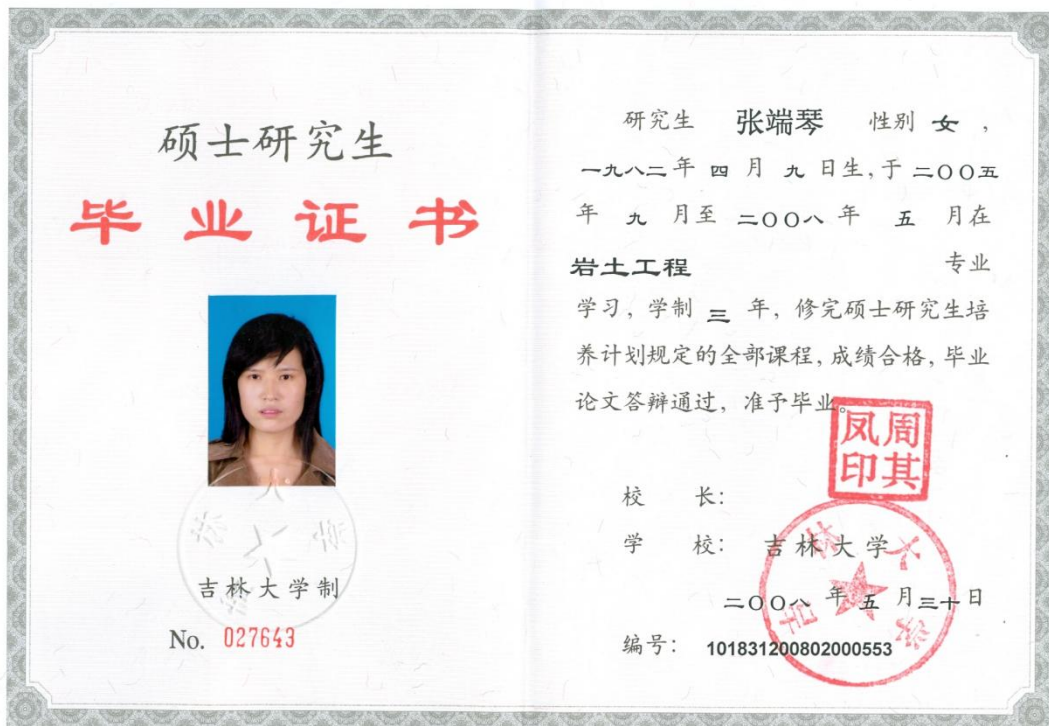 硕士研究生
毕业证书
吉林大学制
No. 027643
研究生 张端琴 性别 女，
一九八二年 四 月 九 日生，于 二〇〇五
年 九 月至 二〇〇八 年 五 月在
岩土工程 专业
学习，学制 三 年，修完硕士研究生培
养计划规定的全部课程，成绩合格，毕业
论文答辩通过，准予毕业。
周其
凤印
校 长：
学 校： 吉林大学
二〇〇八 年 五 月三十日
编号： 101831200802000553
吉林大学